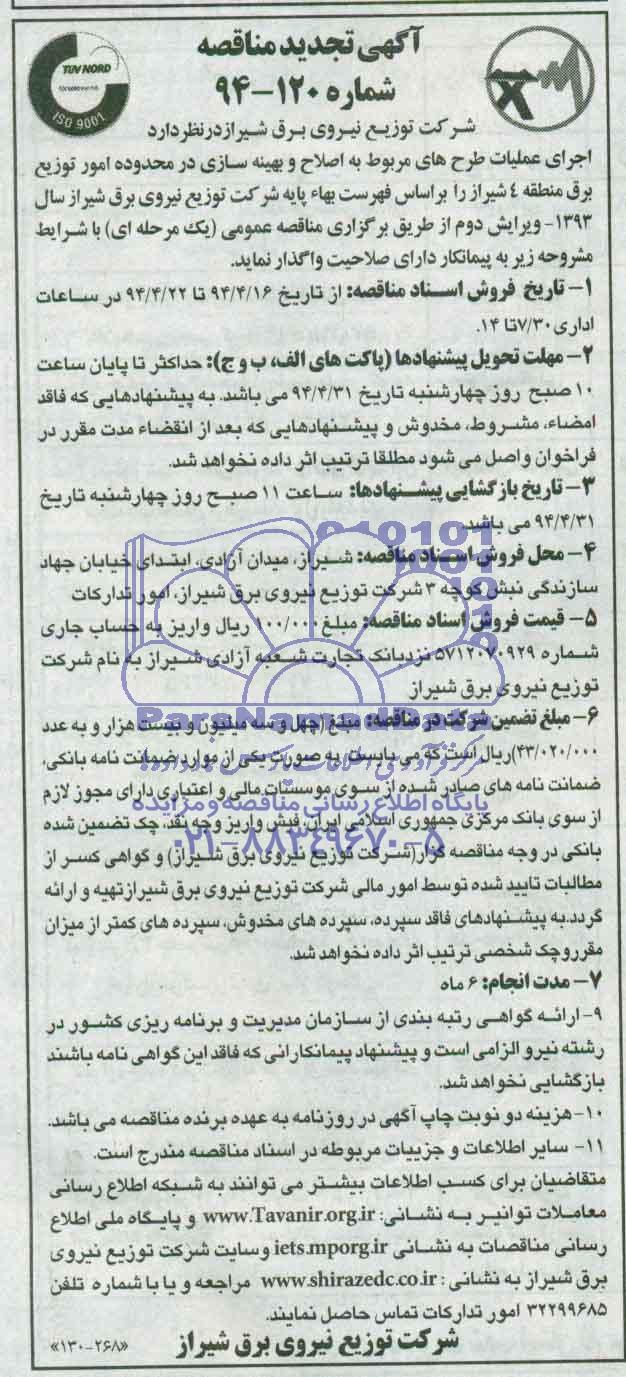 آگهی تجدید مناقصه
شماره ۱۲۰-۹۴
TUV NORD
ISO 9001
شرکت توزیع نیروی برق شیراز درنظر دارد
اجرای عملیات طرح های مربوط به اصلاح و بهینه سازی در محدوده امور توزیع
برق منطقه ۴ شیراز را براساس فهرست بهاء پایه شرکت توزیع نیروی برق شیراز سال
۱۳۹۳- ویرایش دوم از طریق برگزاری مناقصه عمومی (یک مرحله ای) با شرایط
مشروحه زیر به پیمانکار دارای صلاحیت واگذار نماید.
۱- تاریخ فروش اسناد مناقصه: از تاریخ ۹۴/۴/۱۶ تا ۹۴/۴/۲۲ در ساعات
اداری ۷/۳۰ تا ۱۴.
۲- مهلت تحویل پیشنهادها (پاکت های الف، ب و ج): حداکثر تا پایان ساعت
۱۰ صبح روز چهارشنبه تاریخ ۹۴/۴/۳۱ می باشد. به پیشنهادهایی که فاقد
امضاء، مشروط، مخدوش و پیشنهادهایی که بعد از انقضاء مدت مقرر در
فراخوان واصل می شود مطلقا ترتیب اثر داده نخواهد شد.
۳- تاریخ بازگشایی پیشنهادها: ساعت ۱۱ صبح روز چهارشنبه تاریخ
۹۴/۴/۳۱ می باشد.
۴- محل فروش اسناد مناقصه: شیراز، میدان آزادی، ابتدای خیابان جهاد
سازندگی نبش کوچه ۳ شرکت توزیع نیروی برق شیراز، امور تدارکات
۵- قیمت فروش اسناد مناقصه: مبلغ ۱۰۰/۰۰۰ ریال واریز به حساب جاری
شماره ۵۷۱۲۰۷۰۹۲۹ نزد بانک تجارت شعبه آزادی شیراز به نام شرکت
توزیع نیروی برق شیراز
۶- مبلغ تضمین شرکت در مناقصه: مبلغ (چهل و سه میلیون و بیست هزار و به عدد
۴۳/۰۲۰/۰۰۰) ریال است که می بایست به صورت یکی از موارد ضمانت نامه بانکی،
ضمانت نامه های صادر شده از سوی موسسات مالی و اعتباری دارای مجوز لازم
از سوی بانک مرکزی جمهوری اسلامی ایران، فیش واریز وجه نقد، چک تضمین شده
بانکی در وجه مناقصه گزار (شرکت توزیع نیروی برق شیراز) و گواهی کسر از
مطالبات تایید شده توسط امور مالی شرکت توزیع نیروی برق شیراز تهیه و ارائه
گردد. به پیشنهادهای فاقد سپرده، سپرده های مخدوش، سپرده های کمتر از میزان
مقرر و چک شخصی ترتیب اثر داده نخواهد شد.
۷- مدت انجام: ۶ ماه
۹- ارائه گواهی رتبه بندی از سازمان مدیریت و برنامه ریزی کشور در
رشته نیرو الزامی است و پیشنهاد پیمانکارانی که فاقد این گواهی نامه باشند
بازگشایی نخواهد شد.
۱۰- هزینه دو نوبت چاپ آگهی در روزنامه به عهده برنده مناقصه می باشد.
۱۱- سایر اطلاعات و جزییات مربوطه در اسناد مناقصه مندرج است.
متقاضیان برای کسب اطلاعات بیشتر می توانند به شبکه اطلاع رسانی
معاملات توانیر به نشانی: www.Tavanir.org.ir و پایگاه ملی اطلاع
رسانی مناقصات به نشانی iets.mporg.ir وسایت شرکت توزیع نیروی
برق شیراز به نشانی: www.shirazedc.co.ir مراجعه و یا با شماره تلفن
۳۲۲۹۹۶۸۵ امور تدارکات تماس حاصل نمایند.
شرکت توزیع نیروی برق شیراز
«۱۳۰-۲۶۸»
ParsNamadData
پایگاه اطلاع رسانی مناقصه و مزایده
۰۲۱-۸۸۳۴۹۶۷۰-۵